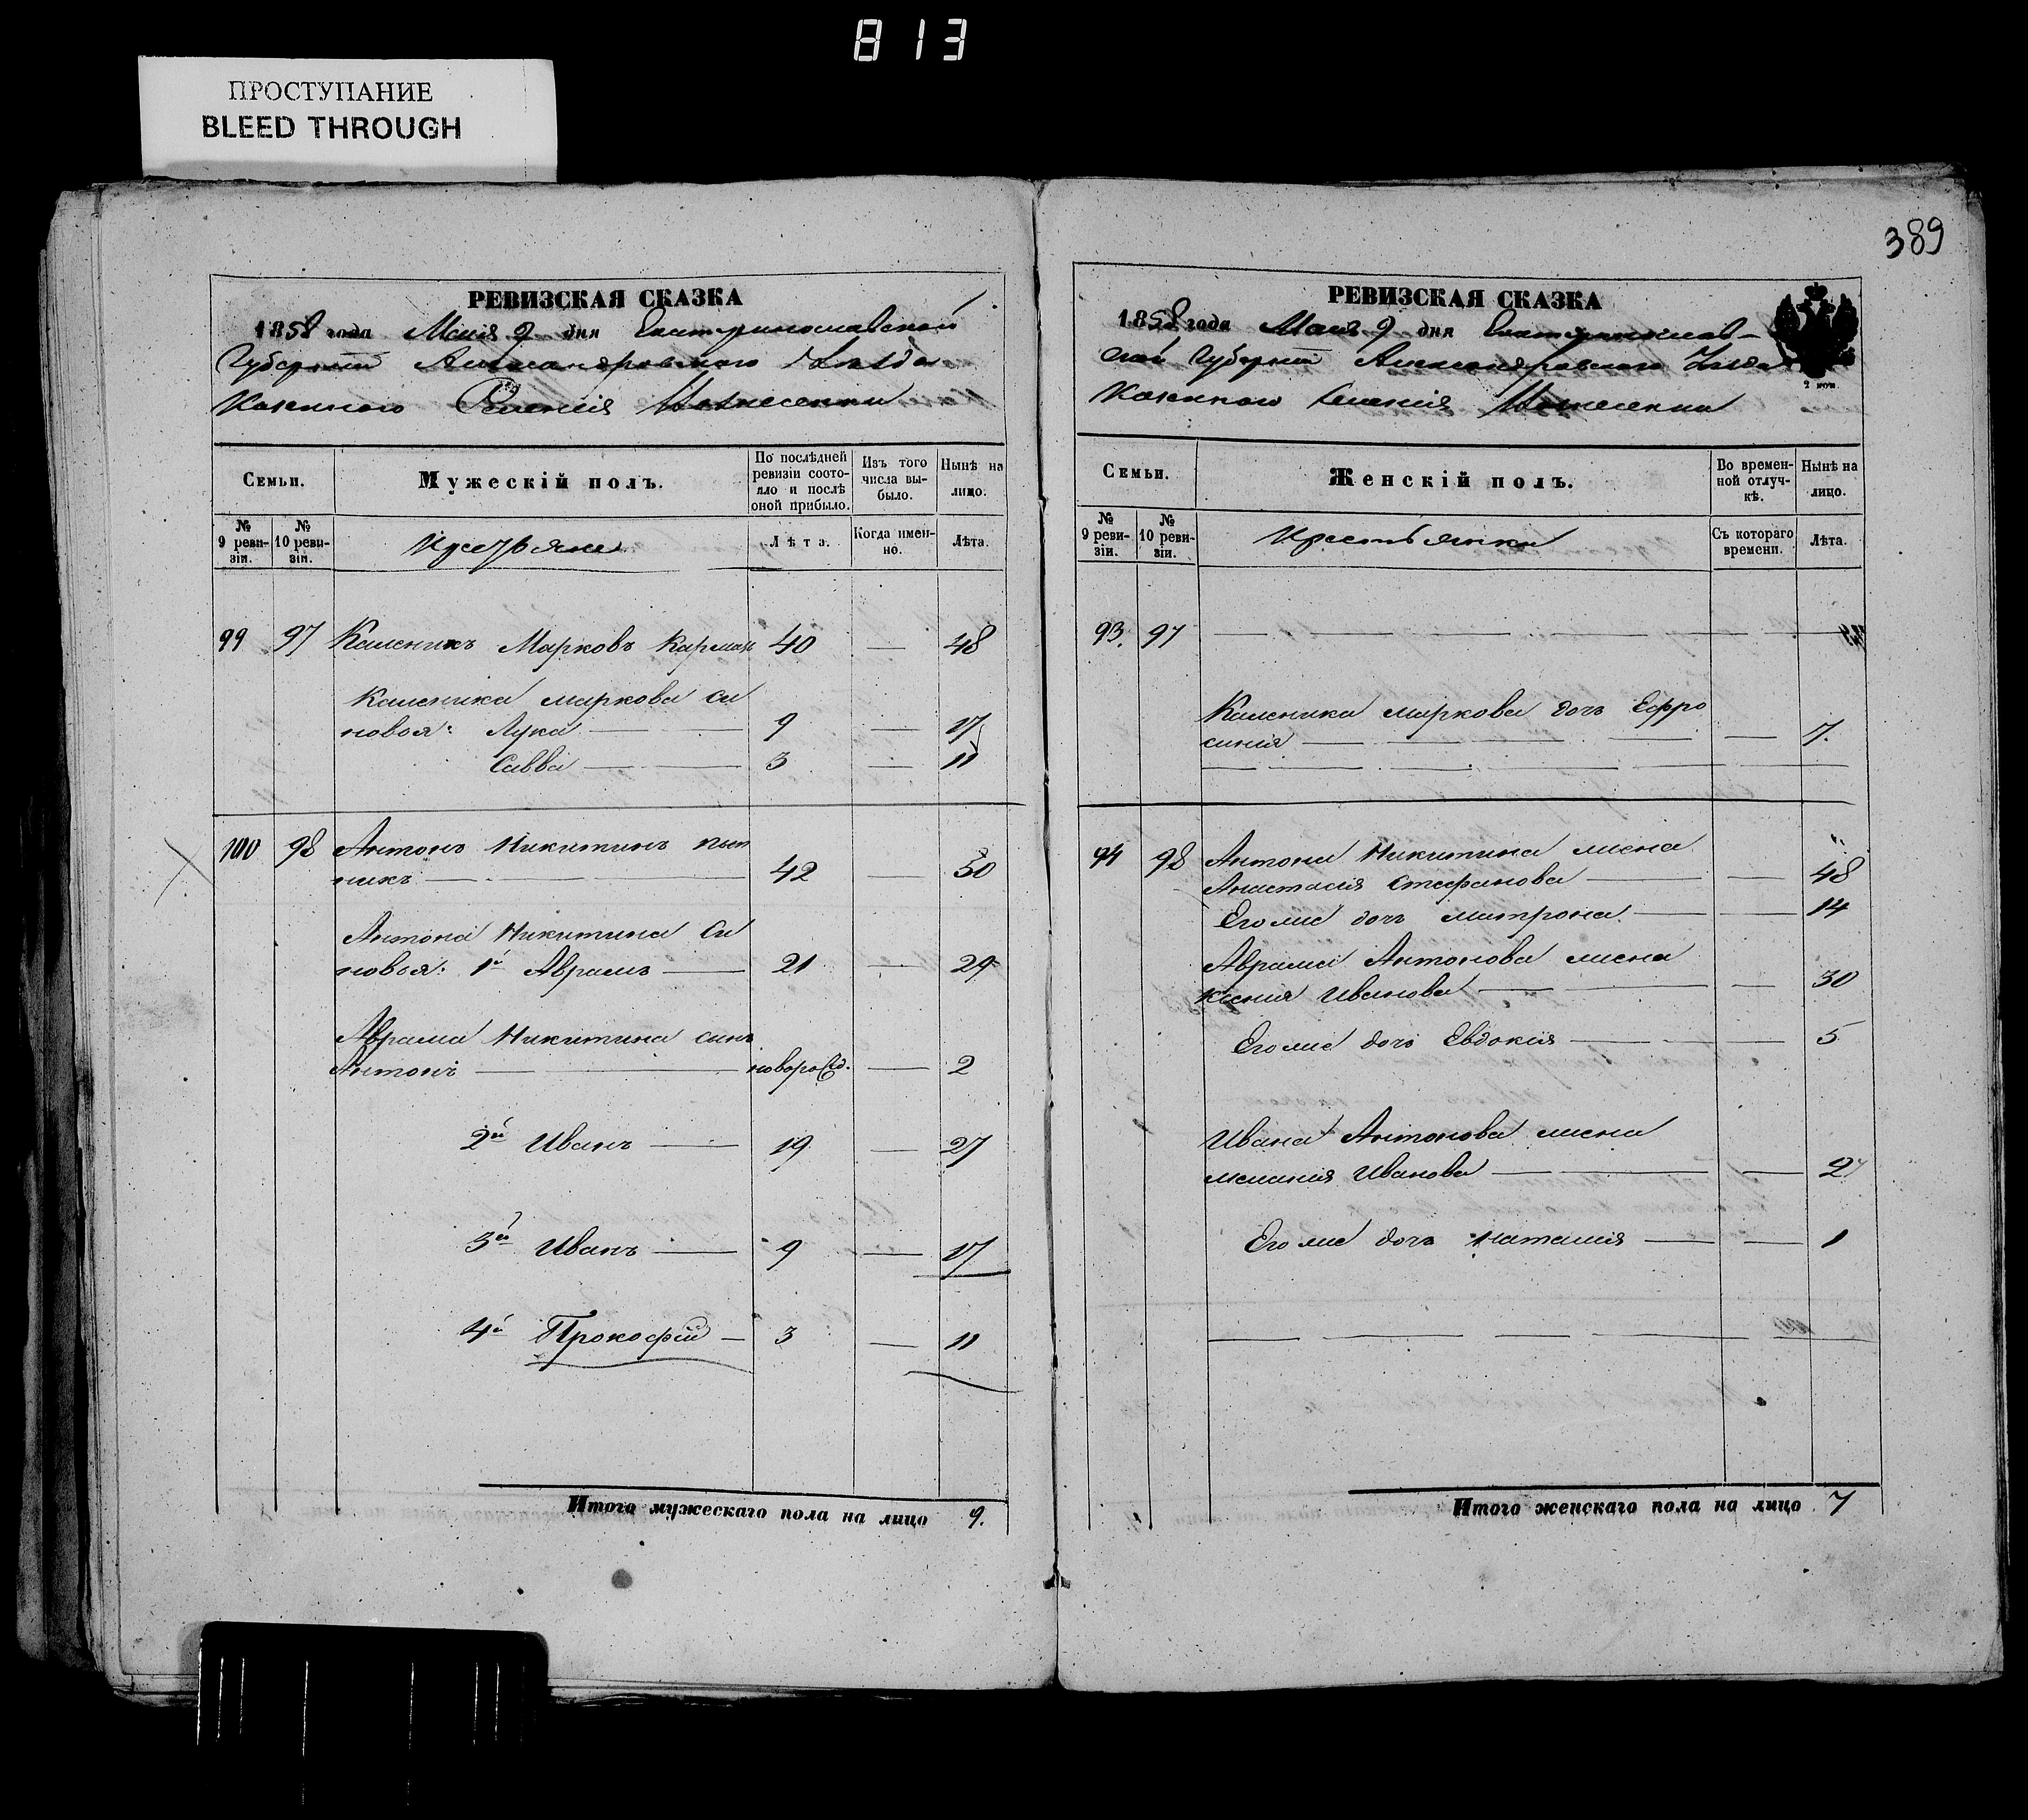 813
ПРОСТУПАНИЕ
BLEED THROUGH
389
РЕВИЗСКАЯ СКАЗКА
1858 года Маія 9 дня Екатеринославской
Губерніи Александровскаго Уѣзда
Казеннаго Селенія Вознесенки
Семьи.
Мужескій полъ.
По послѣдней ревизіи состояло и послѣ оной прибыло.
Изъ того числа выбыло.
Нынѣ на лицо.
№ 9 ревизіи.
№ 10 ревизіи.
Крестьяне
Лѣта.
Когда именно.
Лѣта.
99 97 Каленикъ Марковъ 40 — 48
Каленика Маркова си
новья: Лука — 9 — 17
Савва — 3 — 11
100 98 Антонъ Никитинъ
никъ — 42 — 50
Антона Никитина Си
новья: 1й Аврамъ — 21 — 29
Аврама Никитина синъ
Антонъ — новорожд. — 2
2й Иванъ — 19 — 27
3й Иванъ — 9 — 17
4й Прокофій — 3 — 11
Итого мужескаго пола на лицо 9.
РЕВИЗСКАЯ СКАЗКА
1858 года Маія 9 дня Екатеринослав-
ской Губерніи Александровскаго Уѣзда
Казеннаго Селенія Вознесенки
Семьи.
Женскій полъ.
Во временной отлучкѣ.
Нынѣ на лицо.
№ 9 ревизіи.
№ 10 ревизіи.
Крестьянки
Съ котораго времени.
Лѣта.
93. 97
Каленика Маркова дочь Ефро
синія — 7.
94 98 Антона Никитина жена
Анастасія Стефанова — 48
Егоже дочь Матрона — 14
Аврама Антонова жена
Ксенія Иванова — 30
Егоже дочь Евдокія — 5
Ивана Антонова жена
Меланія Иванова — 27
Егоже дочь Наталія — 1
Итого женскаго пола на лицо 7